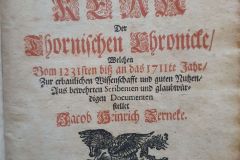 KERN
Der
Thornischen Chronicke/
Welchen
Vom 1231sten biß an das 1711te Jahr/
Zur erbaulichen Wissenschafft und guten Nutzen/
Aus bewehrten Scribenten und glaubwür-
digen Documenten
stellet
Jacob Heinrich Zerneke.